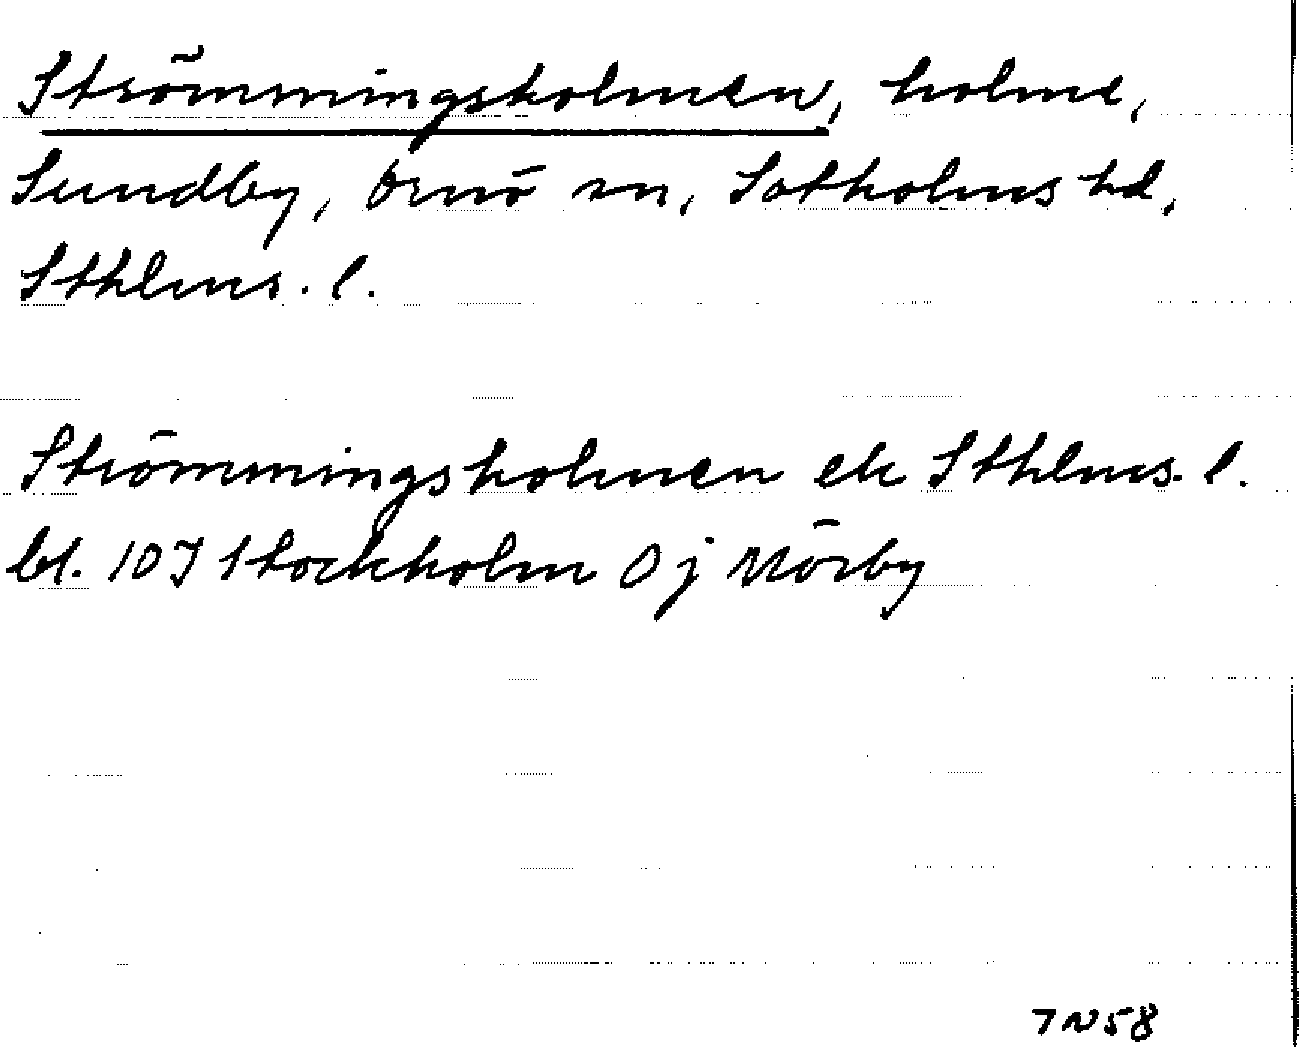 Strömmingsholmen, holme,
Sundby, Ornö sn, Sotholms hd,
Sthlms. l.
Strömmingsholmen ek Sthlms. l.
bl. 10J Stockholm Oj Mörby
7N58